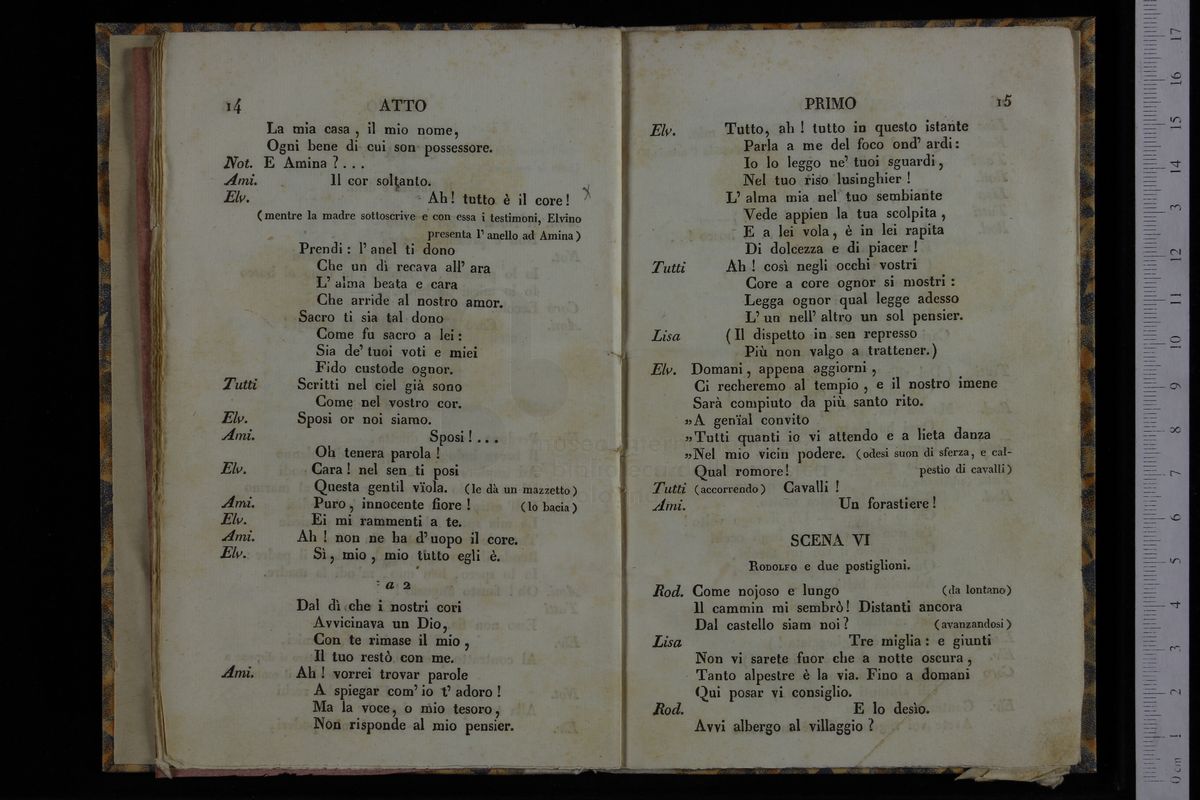 14 ATTO
La mia casa, il mio nome,
Ogni bene di cui son possessore.
Not. E Amina?...
Ami. Il cor soltanto.
Elv. Ah! tutto è il core!
(mentre la madre sottoscrive e con essa i testimoni, Elvino
presenta l' anello ad Amina)
Prendi: l' anel ti dono
Che un dì recava all' ara
L' alma beata e cara
Che arride al nostro amor.
Sacro ti sia tal dono
Come fu sacro a lei:
Sia de' tuoi voti e miei
Fido custode ognor.
Tutti Scritti nel ciel già sono
Come nel vostro cor.
Elv. Sposi or noi siamo.
Ami. Sposi!...
Oh tenera parola!
Elv. Cara! nel sen ti posi
Questa gentil vïola. (le dà un mazzetto)
Ami. Puro, innocente fiore! (lo bacia)
Elv. Ei mi rammenti a te.
Ami. Ah! non ne ha d' uopo il core.
Elv. Sì, mio, mio tutto egli è.
a 2
Dal dì che i nostri cori
Avvicinava un Dio,
Con te rimase il mio,
Il tuo restò con me.
Ami. Ah! vorrei trovar parole
A spiegar com' io t' adoro!
Ma la voce, o mio tesoro,
Non risponde al mio pensier.
PRIMO 15
Elv. Tutto, ah! tutto in questo istante
Parla a me del foco ond' ardi:
Io lo leggo ne' tuoi sguardi,
Nel tuo riso lusinghier!
L' alma mia nel tuo sembiante
Vede appien la tua scolpita,
E a lei vola, è in lei rapita
Di dolcezza e di piacer!
Tutti Ah! così negli occhi vostri
Core a core ognor si mostri:
Legga ognor qual legge adesso
L' un nell' altro un sol pensier.
Lisa (Il dispetto in sen represso
Più non valgo a trattener.)
Elv. Domani, appena aggiorni,
Ci recheremo al tempio, e il nostro imene
Sarà compiuto da più santo rito.
»A genïal convito
»Tutti quanti io vi attendo e a lieta danza
»Nel mio vicin podere. (odesi suon di sferza, e cal-
Qual romore! pestio di cavalli)
Tutti (accorrendo) Cavalli!
Ami. Un forastiere!
SCENA VI
RODOLFO e due postiglioni.
Rod. Come nojoso e lungo (da lontano)
Il cammin mi sembrò! Distanti ancora
Dal castello siam noi? (avanzandosi)
Lisa Tre miglia: e giunti
Non vi sarete fuor che a notte oscura,
Tanto alpestre è la via. Fino a domani
Qui posar vi consiglio.
Rod. E lo desìo.
Avvi albergo al villaggio?
0 cm 1 2 3 4 5 6 7 8 9 10 11 12 13 14 15 16 17